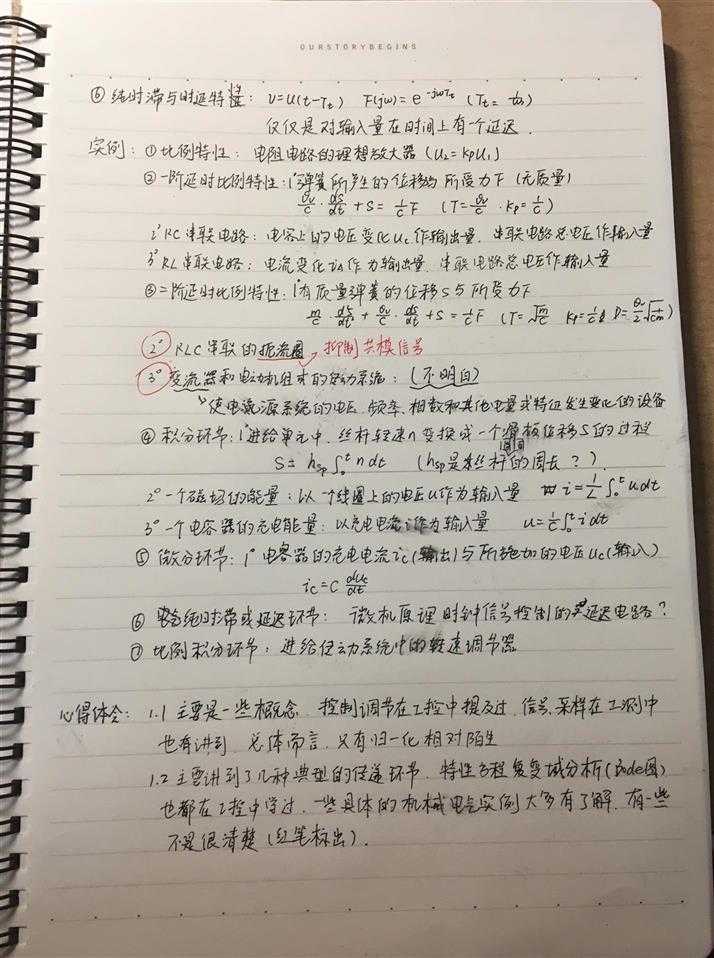 OURSTORYBEGINS
⑥ 纯时滞与时延特性: v=u(t-Tt) F(jω)=e^-jωTt (Tt=
仅仅是对输入量在时间上有一个延迟.
实例: ①比例特性: 电阻电路的理想放大器 (U2=KpU1)
②一阶延时比例特性: 1°弹簧所产生的位移与所受力F (无质量)
θv/c · ds/dt + S = 1/c F (T=θv/c · Kp=1/c)
2° RC串联电路: 电容上的电压变化uc作输出量. 串联电路总电压作输入量
3° RL串联电路: 电流变化 作为输出量. 串联电路总电压作输入量
③二阶延时比例特性: 1°有质量弹簧的位移S与所受力F
m/c · + θv/c · ds/dt + S = 1/c F (T=√m/c Kp=1/c D=θv/2 √1/cm)
2° RLC串联的扼流圈 抑制共模信号
3° 变流器和电动机组成的传动系统: (不明白)
使电源系统的电压、频率、相数和其他电量或特征发生变化的设备
④ 积分环节: 1°进给单元中, 丝杆转速n变换成一个滑板位移S的过程
S=hsp∫₀ᵗ n dt (hsp是丝杆的周长?).
2° 一个磁场的能量: 以一个线圈上的电压u作为输入量 i=1/L∫₀ᵗ u dt
3° 一个电容器的充电能量: 以充电电流i作为输入量 u=1/c∫₀ᵗ i dt
⑤ 微分环节: 1° 电容器的充电电流ic(输出)与所施加的电压uc(输入)
ic=C duc/dt
⑥ 纯时滞或延迟环节: 微机原理时钟信号控制的延迟电路?
⑦ 比例积分环节: 进给传动系统中的转速调节器
心得体会: 1.1 主要是一些概念. 控制调节在工控中提及过. 信号、采样在工测中
也有讲到. 总体而言, 只有归一化相对陌生
1.2 主要讲到了几种典型的传递环节. 特性方程复变域分析(Bode图)
也都在工控中学过. 一些具体的机械电气实例大多有了解. 有一些
不是很清楚 (红笔标出).